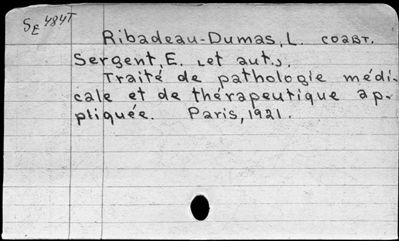 SE 484T
Ribadeau-Dumas, L. COABT.
Sergent, E. [et aut.],
Traité de pathologie médi-
cale et de thérapeutique ap-
pliquée. Paris, 1921.